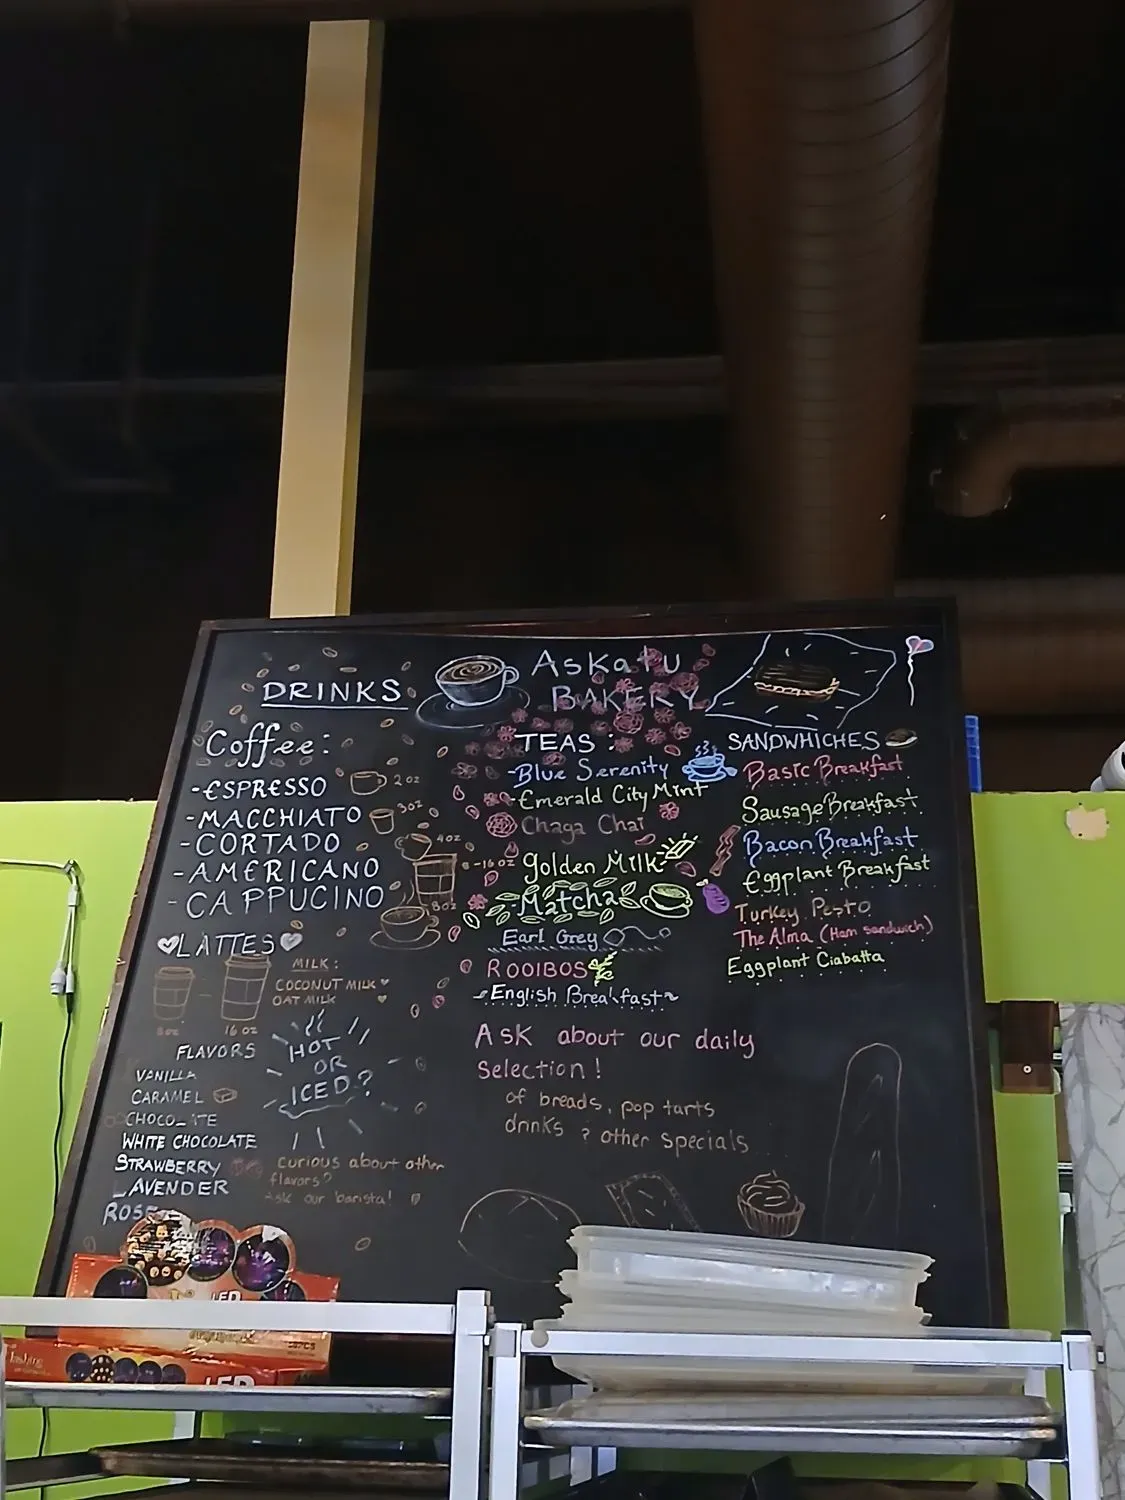 ASKATU
BAKERY
DRINKS
Coffee:
-ESPRESSO
2 oz
-MACCHIATO
3oz
-CORTADO
4oz
-AMERICANO
-16 oz
-CAPPUCINO
8oz
LATTES
MILK:
COCONUT MILK
OAT MILK
8oz
16 oz
FLAVORS
VANILLA
CARAMEL
CHOCOLATE
WHITE CHOCOLATE
STRAWBERRY
LAVENDER
ROSE
HOT
OR
ICED?
curious about other
flavors?
Ask our barista!
TEAS:
-Blue Serenity
-Emerald City Mint
Chaga Chai
Golden Milk
Matcha
Earl Grey
ROOIBOS
English Breakfast
SANDWHICHES
Basic Breakfast
Sausage Breakfast
Bacon Breakfast
Eggplant Breakfast
Turkey Pesto
The Alma (Ham sandwich)
Eggplant Ciabatta
Ask about our daily
selection!
of breads, pop tarts
drinks & other specials
LED
LED